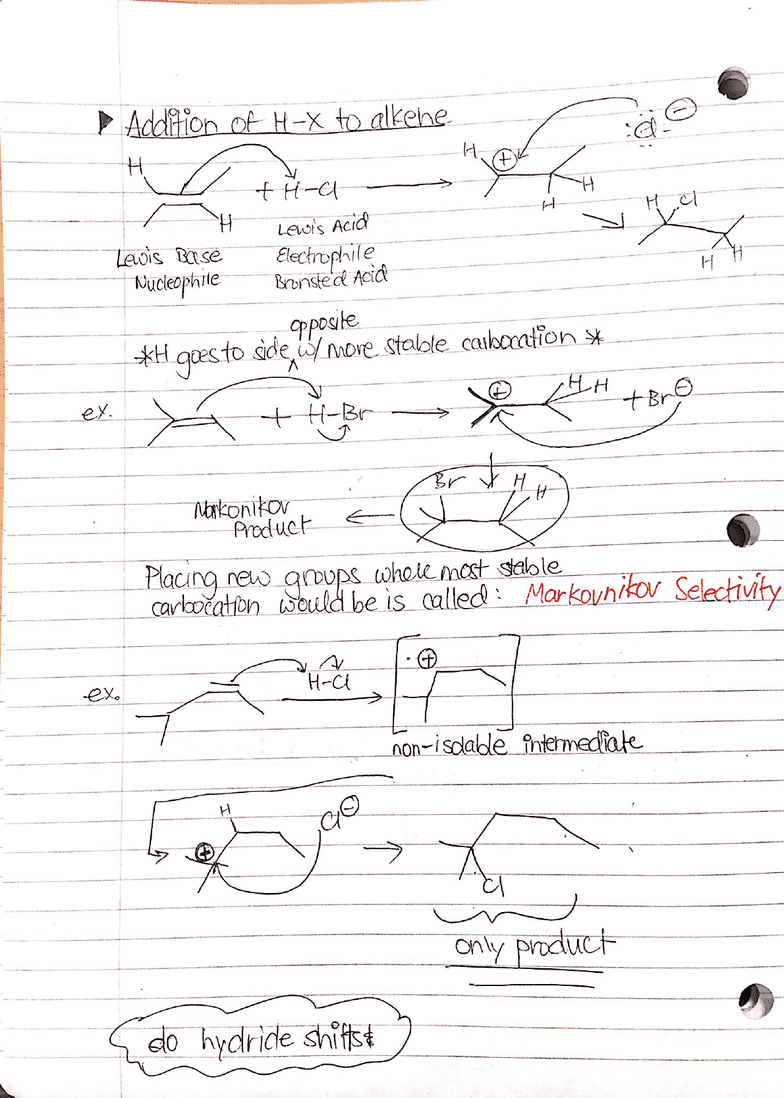 ▶ Addition of H-X to alkene
H
H
+ H-Cl
H ⊕
H
H
:Cl: ⊖
H Cl
H H
Lewis Base
Nucleophile
Lewis Acid
Electrophile
Bronsted Acid
opposite
*H goes to side ^ w/ more stable carbocation *
ex. + H-Br ⊕ H H + Br ⊖
Br H H
Markonikov
Product
Placing new groups where most stable
carbocation would be is called: Markovnikov Selectivity
ex. H-Cl ⊕
non-isolable intermediate
H ⊕ Cl ⊖
Cl
only product
do hydride shifts